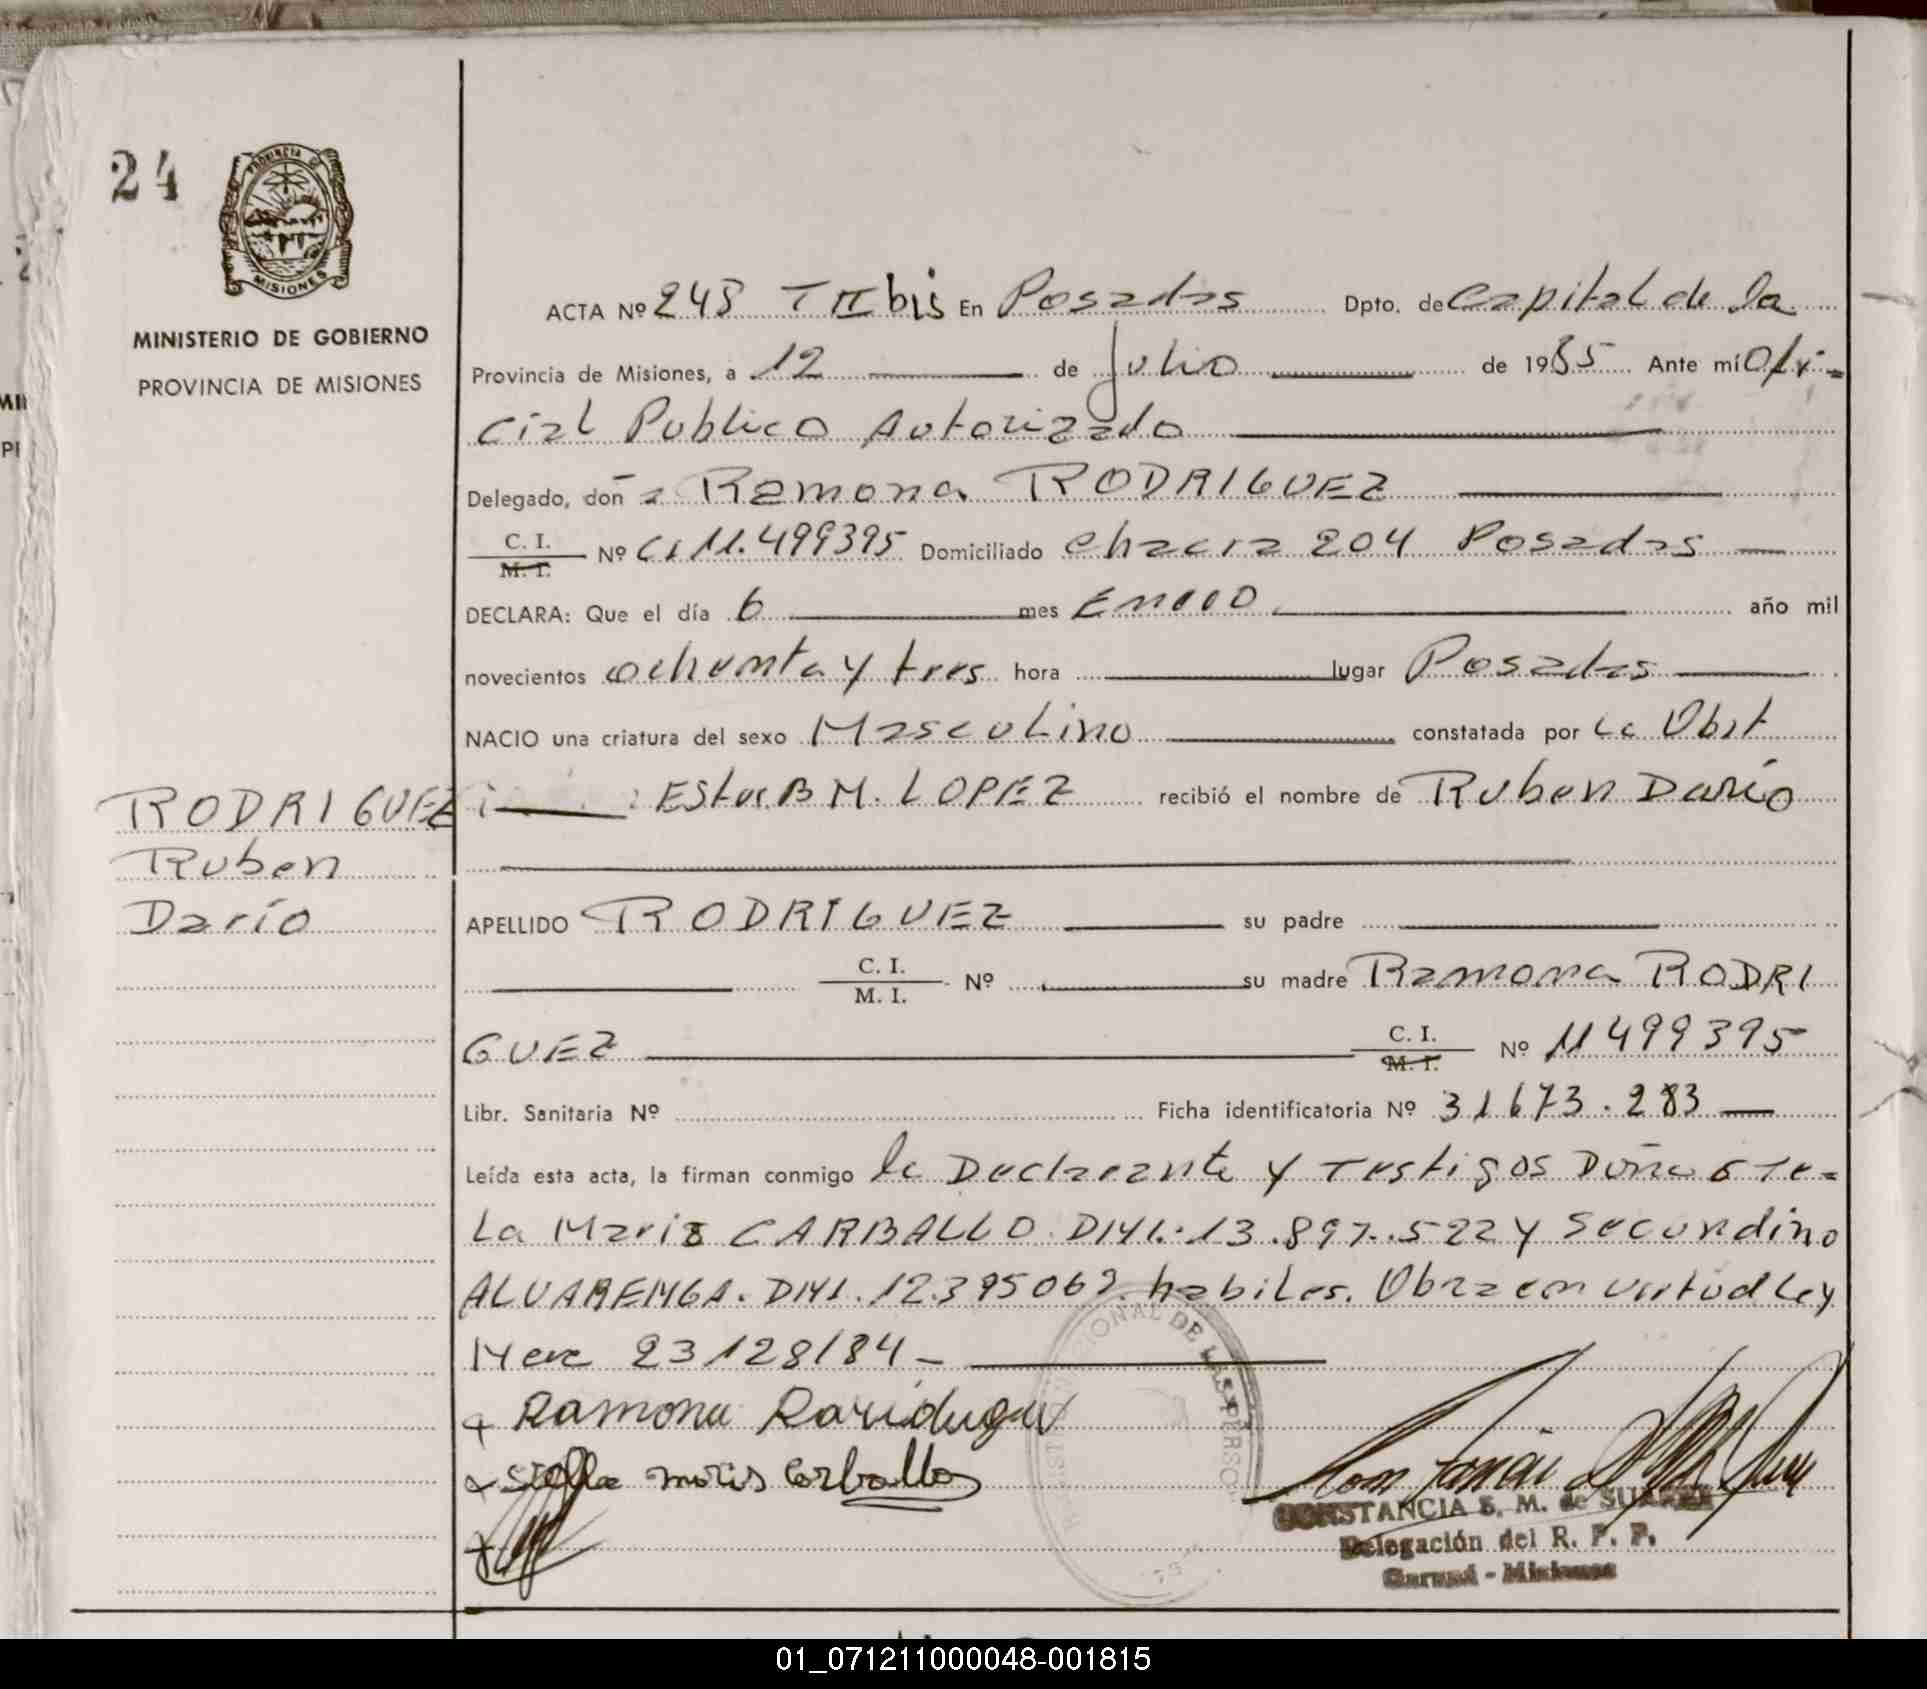 24
PROVINCIA DE
MISIONES
MINISTERIO DE GOBIERNO
PROVINCIA DE MISIONES
ACTA Nº 248 T II bis En Posadas Dpto. de Capital de la
Provincia de Misiones, a 12 de Julio de 1985 Ante mí Ofi-
cial Publico Autorizado
Delegado, doña Ramona RODRIGUEZ
C. I. M. I. Nº CI 11.499395 Domiciliado chacra 204 Posadas
DECLARA: Que el día 6 mes Enero año mil
novecientos ochenta y tres hora lugar Posadas
NACIO una criatura del sexo Masculino constatada por La Obst
: Ester B M. LOPEZ recibió el nombre de Ruben Darío
RODRIGUEZ
Ruben
Darío
APELLIDO RODRIGUEZ su padre
C. I. M. I. Nº su madre Ramona RODRI
GUEZ C. I. M. I. Nº 11499395
Libr. Sanitaria Nº Ficha identificatoria Nº 31673.283
Leída esta acta, la firman conmigo la Declarante y Testigos Doña Ste-
la Maris CARBALLO. DNI. 13.897.522 y Secundino
ALVARENGA. DNI. 12.395069. habiles. Obra en virtud Ley
Nac 23128/84 -
Ramona Raridugu
Stella maris Carballo
REGISTRO DE LAS PERSO
CONSTANCIA S. M. de SUAREZ
Delegación del R. P. P.
Garupá - Misiones
01_071211000048-001815